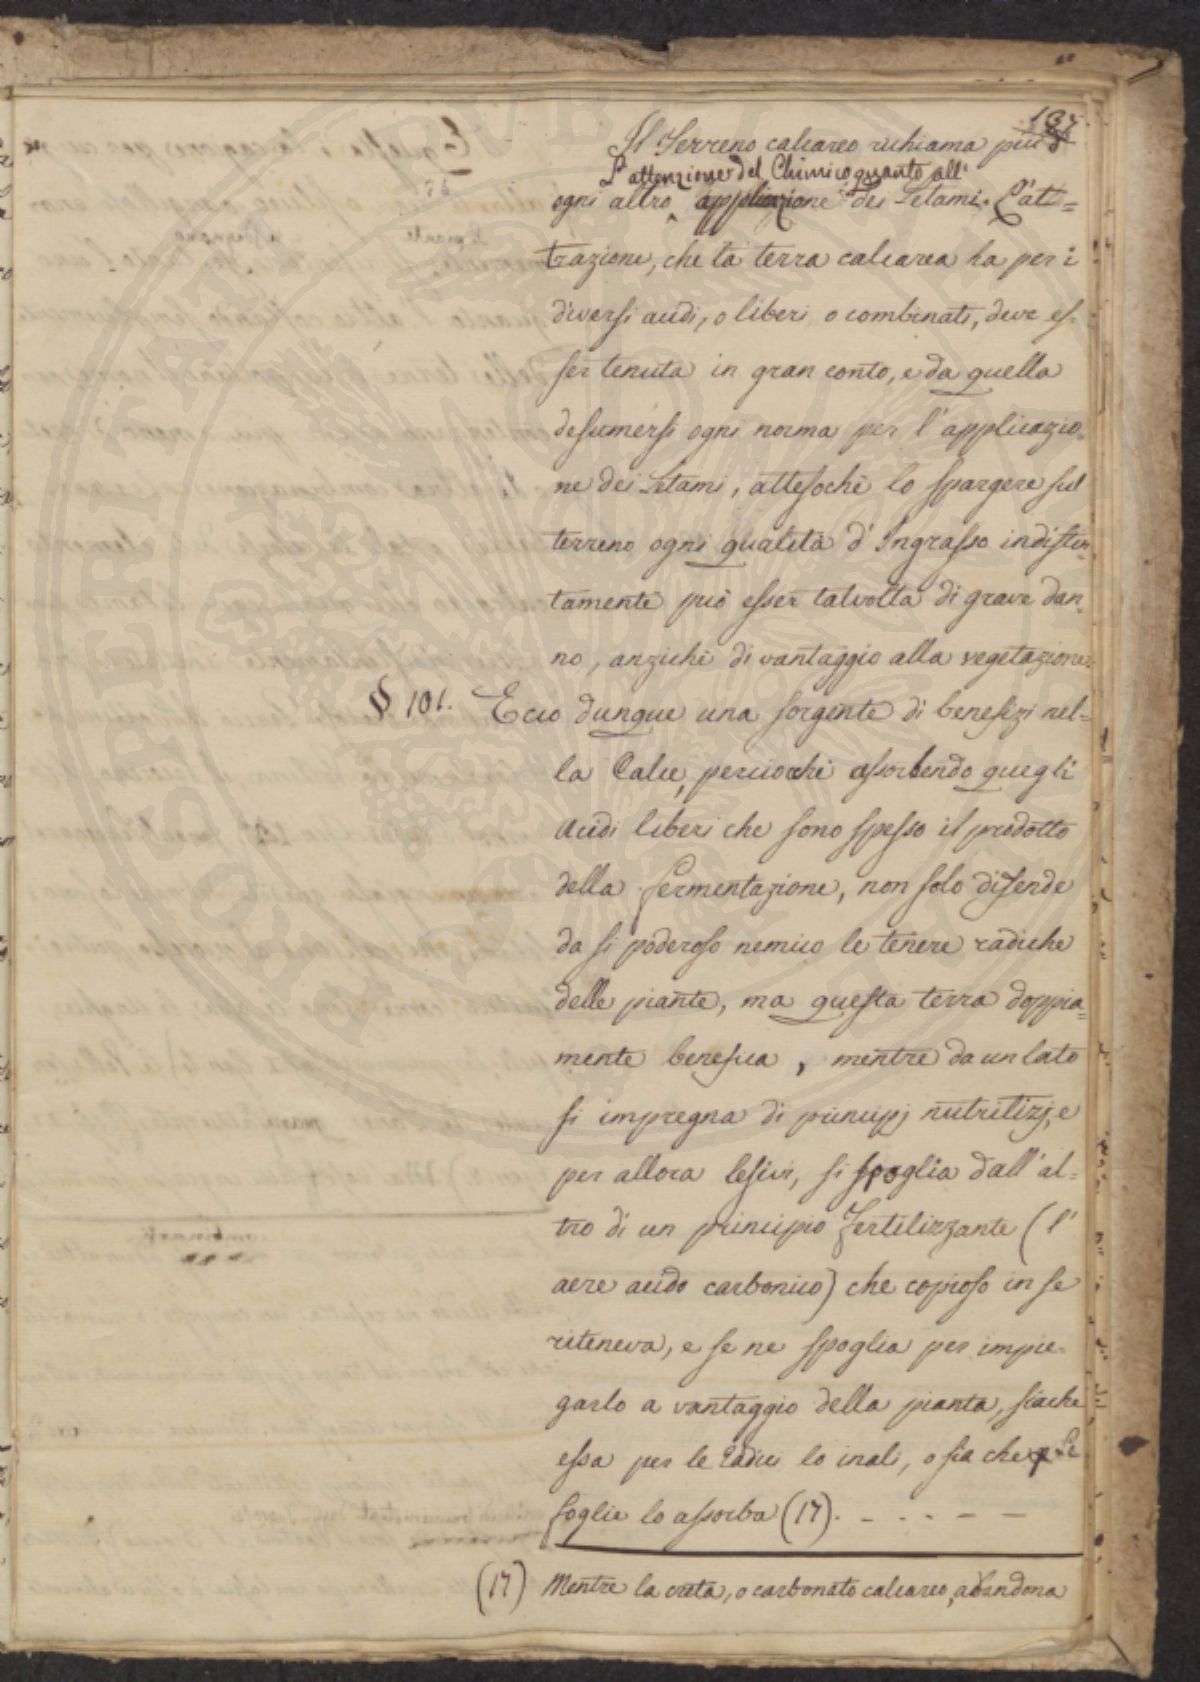 137.
Il Terreno calcareo richiama più d'
l'attenzione del Chimico quanto all'
ogni altro applicazione dei Letami. L'at=
trazione, che la terra calcarea ha per i
diversi acidi, o liberi o combinati, deve es-
ser tenuta in gran conto, e da quella
desumersi ogni norma per l'applicazio=
ne dei Letami, attesochè lo spargere sul
terreno ogni qualità d'Ingrasso indistin=
tamente può esser talvolta di grave dan=
no, anzichè di vantaggio alla vegetazione.
§ 101. Ecco dunque una sorgente di benefizi nel=
la Calce, perciocchè assorbendo quegli
acidi liberi che sono spesso il prodotto
della fermentazione, non solo difende
da si poderoso nemico le tenere radiche
delle piante, ma questa terra doppia=
mente benefica, mentre da un lato
si impregna di principj nutritizj, e
per allora lesivi, si spoglia dall'al=
tro di un principio fertilizzante (l'
aere acido carbonico) che copioso in se
riteneva, e se ne spoglia per impie-
garlo a vantaggio della pianta, siache
essa per le radici lo inali, o sia che le
foglie lo assorba (17). - - - - -
(17) Mentre la creta, o carbonato calcareo, abandona